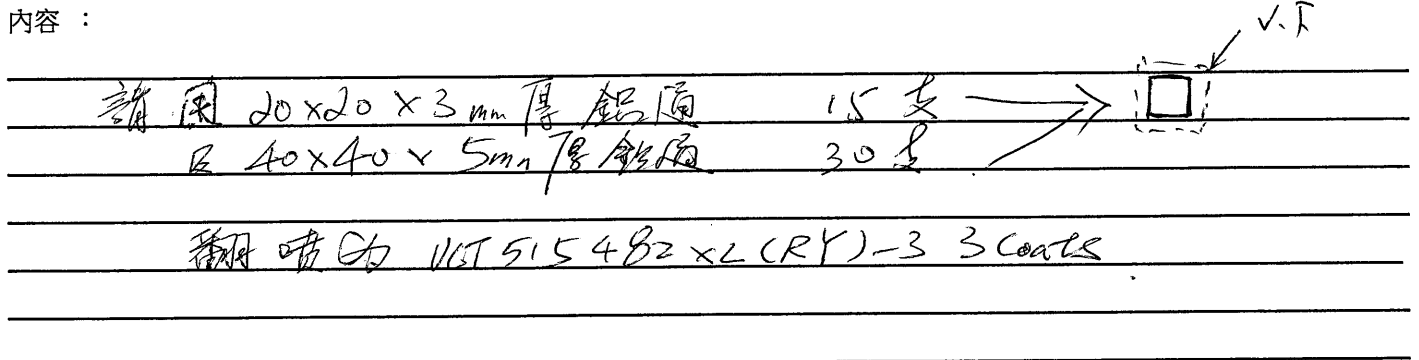 內容 :
V.F
請用 20x20x3mm厚鋁通 15支
40x40x5mm厚鋁通 30支
翻噴 UCT515482XL(RY)-3 3Coats